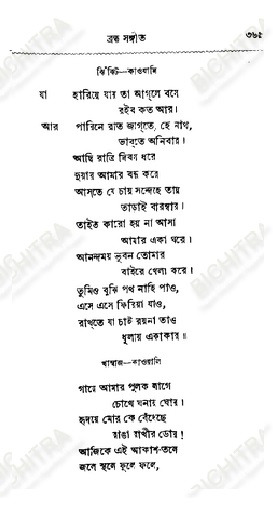 ব্রহ্ম সঙ্গীত ৩৬৫
ঝিঁঝিট—কাওয়ালি
যা হারিয়ে যায় তা আগ্‌লে বসে
রইব কত আর।
আর পারিনে রাত জাগ্‌তে, হে নাথ,
ভাব্‌তে অনিবার।
আছি রাত্রি দিবস ধরে
দুয়ার আমার বন্ধ করে
আস্‌তে যে চায় সন্দেহে তায়
তাড়াই বারম্বার।
তাইত কারো হয় না আসা
আমার একা ঘরে।
আনন্দময় ভুবন তোমার
বাইরে খেলা করে।
তুমিও বুঝি পথ নাহি পাও,
এসে এসে ফিরিয়া যাও,
রাখ্‌তে যা চাই রয়না তাও
ধূলায় একাকার॥
খাম্বাজ—কাওয়ালি
গায়ে আমার পুলক লাগে
চোখে ঘনায় ঘোর।
হৃদয়ে মোর কে বেঁধেছে
রাঙা রাখীর ডোর!
আজিকে এই আকাশ-তলে
জলে স্থলে ফুলে ফলে,
BICHITRA